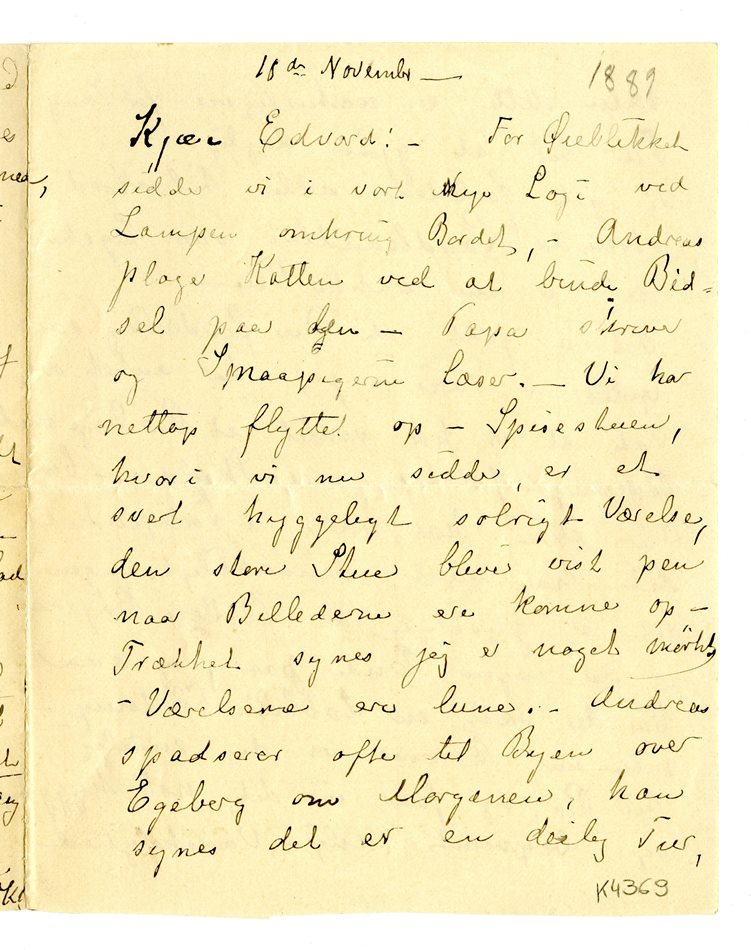 18de Novembr —
1889
Kjære Edvard! — For Øieblikket
sidde vi i vort nye Logi ved
Lampen omkring Bordet, — Andreas
plage Katten ved at binde Bid=
sel paa den — Papa skriver
og Smaapigerne læser. — Vi har
nettop flyttet op — Spisestuen,
hvori vi nu sidde, er et
svert hyggeligt solrigt Værelse,
den store Stue bliver vist pen
naar Billederne ere komne op —
Trækket synes jeg er noget mørkt,
— Værelserne ere lune. — Andreas
spadserer ofte til Byen over
Egeberg om Morgenen, han
synes det er en deilig Tur,
K4369